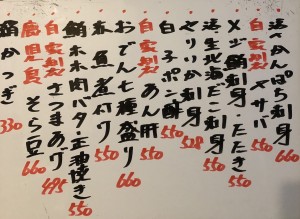 活かんぱち刺身 550
自家製〆サバ 550
メジ鮪刺身・たたき 550
活・生北海だこ刺身 550
やりいか刺身 528
白子ポン酢 550
自家製あん肝 550
おでん七種盛り 660
赤魚煮付け 550
鮪ホホ肉バタ正油焼き 550
自家製さつまあげ 495
鹿児島そら豆 660
絹かつぎ 330